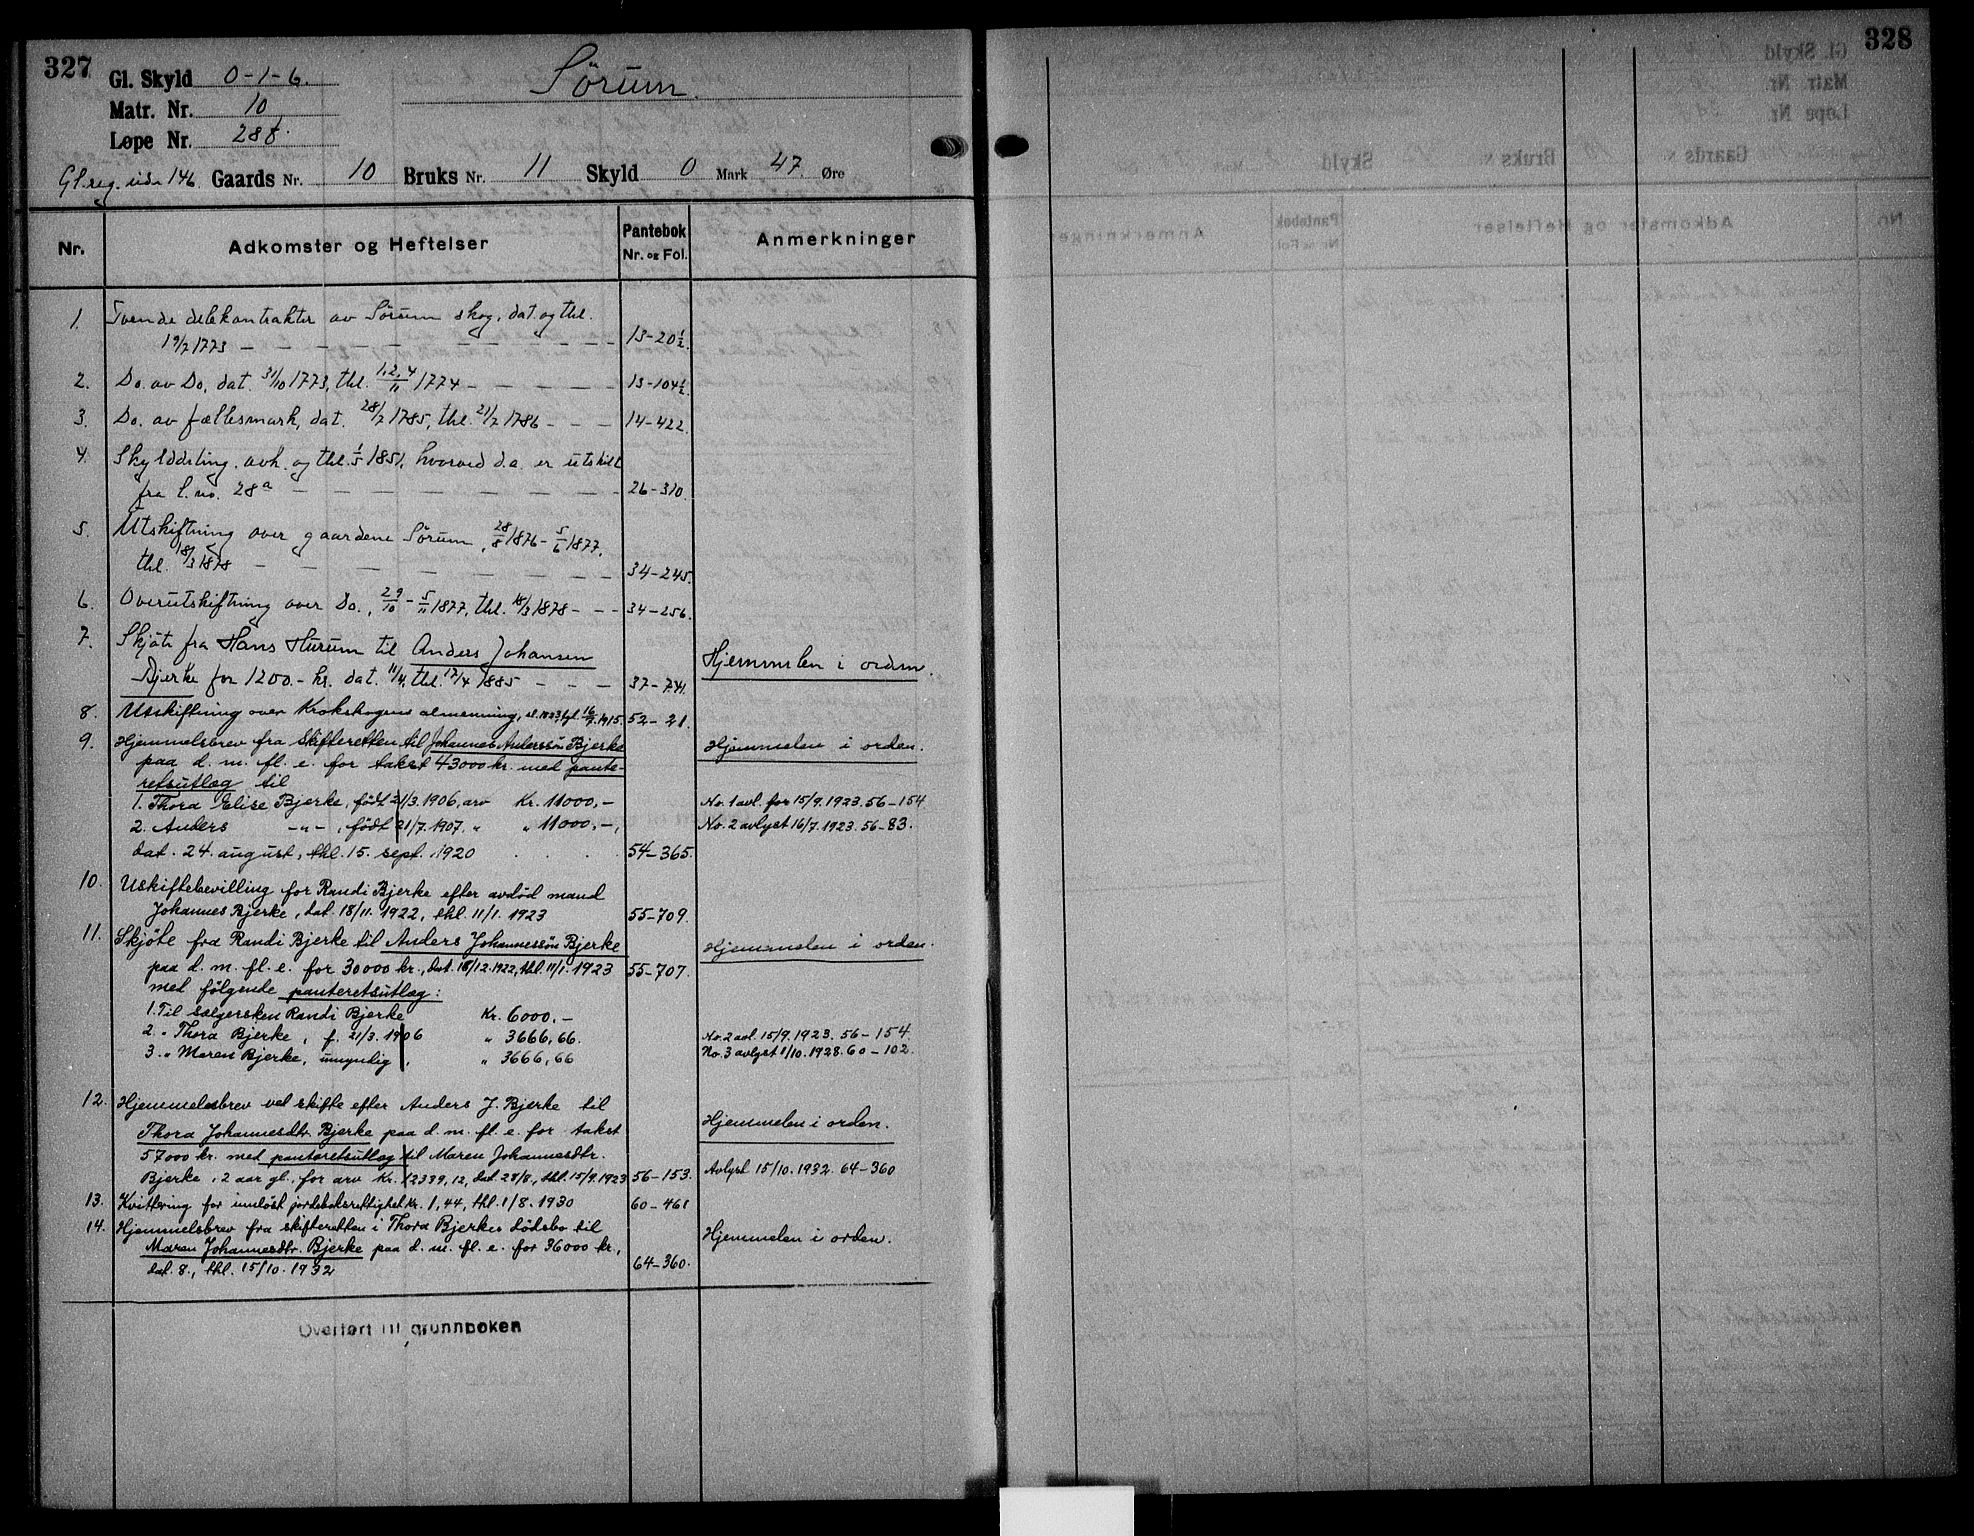 327
328
Gl. Skyld 0-1-6.
Sörum.
Matr. Nr. 10
Løpe Nr. 28
Gl. reg. side 146. Gaards Nr. 10 Bruks Nr. 11 Skyld 0 Mark 47. Øre
Nr. Adkomster og Heftelser Pantebok Nr. og Fol. Anmerkninger
1. Tvende delekontrakter av Sörum skog, dat. og thl.
19/7 1773 — — — — — — — — 13-20½.
2. Do. av Do, dat. 31/10 1773, thl. 1.2.4/11 1774 — — — — — 13-104½.
3. Do. av fællesmark, dat. 28/7 1785, thl. 21/7 1786 — — — 14-422.
4. Skylddeling. avh. og thl. 1/5 1851, hvorved d.a. er utskilt
fra l. no. 28a — — — — — — — — 26-310.
5. Utskiftning over gaardene Sörum, 28/8 1876 - 5/6 1877,
thl. 18/3 1878 — — — — — — — — 34-245.
6. Overutskiftning over Do., 29/10 - 5/11 1877, thl. 18/3 1878 - - - 34-256.
7. Skjöte fra Hans Hurum til Anders Johansen
Bjerke for 1200.- kr. dat. 11/4, thl. 17/4 1885 — — — 37-741. Hjemmelen i orden.
8. Utskiftning over Krokskogens almenning, sl. 1823 tgl. 16/7. 1915. 52-21.
9. Hjemmelsbrev fra skifteretten til Johannes Anderssön Bjerke Hjemmelen i orden.
paa d. m. fl. e. for takst 43000 kr. med pante-
retsutlæg til
1. Thora Elise Bjerke, födt 21/3. 1906, arv Kr. 11000,- No. 1 avl. for 15/9. 1923. 56-154
2. Anders -"- , födt 21/7. 1907. " " 11000.-, No. 2 avlyst 16/7. 1923. 56-83.
dat. 24. august, thl. 15. sept. 1920 . . . . 54-365.
10. Uskiftebevilling for Randi Bjerke efter avdöd mand
Johannes Bjerke, dat. 18/11. 1922, thl. 11/1. 1923 55-709.
11. Skjöte fra Randi Bjerke til Anders Johannessön Bjerke Hjemmelen i orden.
paa d. m. fl. e. for 30000 kr., dat. 18/12. 1922, thl. 11/1. 1923 55-707.
med fölgende panteretsutlæg:
1. Til sælgersken Randi Bjerke Kr. 6000.-
2. " Thora Bjerke, f. 21/3. 1906 " 3666,66. No. 2 avl. 15/9. 1923. 56-154.
3. " Maren Bjerke, umyndig, " 3666,66 No. 3 avlyst 1/10. 1928. 60-102.
12. Hjemmelsbrev ved skifte efter Anders J. Bjerke til
Thora Johannesdtr. Bjerke paa d. m. fl. e. for takst Hjemmelen i orden.
57000 kr. med panteretsutlæg til Maren Johannesdtr.
Bjerke, 2 aar gl., for arv Kr. 12339,12, dat. 28/8., thl. 15/9. 1923 56-153. Avlyst 15/10. 1932. 64-360
13. Kvittering for innlöst jordeboksrettighet kr. 1,44, thl. 1/8. 1930 60-461
14. Hjemmelsbrev fra skifteretten i Thora Bjerkes dödsbo til
Maren Johannesdtr. Bjerke paa d. m. fl. e. for 36000 kr., Hjemmelen i orden.
dat. 8., thl. 15/10. 1932 64-360.
Overført til grunnboken